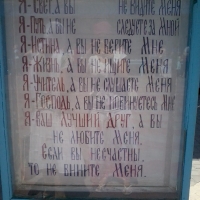 Я-Свет, а вы не видите Меня
Я-Путь, а вы не следуете за Мной
Я-Истина, а вы не верите Мне
Я-Жизнь, а вы не ищите Меня
Я-Учитель, а вы не слушаете Меня
Я-Господь, а вы не повинуетесь Мне
Я-Ваш лучший Друг, а вы
не любите Меня.
Если вы несчастны,
то не вините Меня.